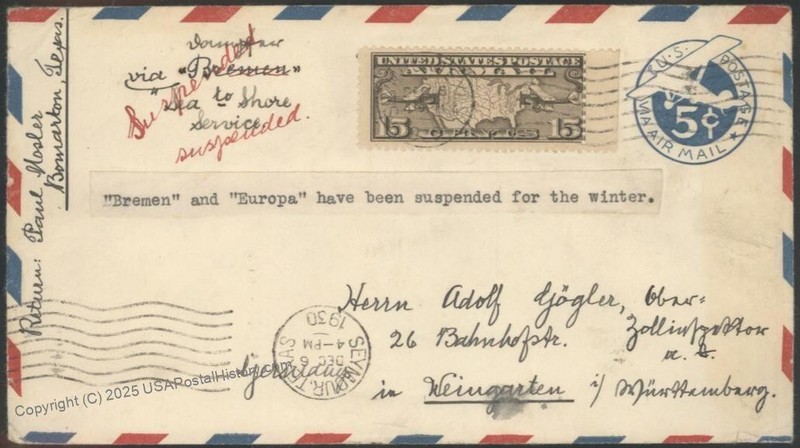 Dampfer
via "Bremen"
"Sea to Shore
Service
Suspended
suspended.
UNITED STATES POSTAGE
AIR MAIL
15 CENTS 15
U.S. POSTAGE
5¢
VIA AIR MAIL
Return: Paul Mosler
Bomarton, Texas.
"Bremen" and "Europa" have been suspended for the winter.
SEYMOUR, TEXAS
DEC 6
4-PM
1930
Herrn Adolf Gögler, Ober=
Zollinspektor
26 Bahnhofstr. a. D.
Germany in Weingarten i/ Württemberg.
Copyright (C) 2025 USAPostalHistory